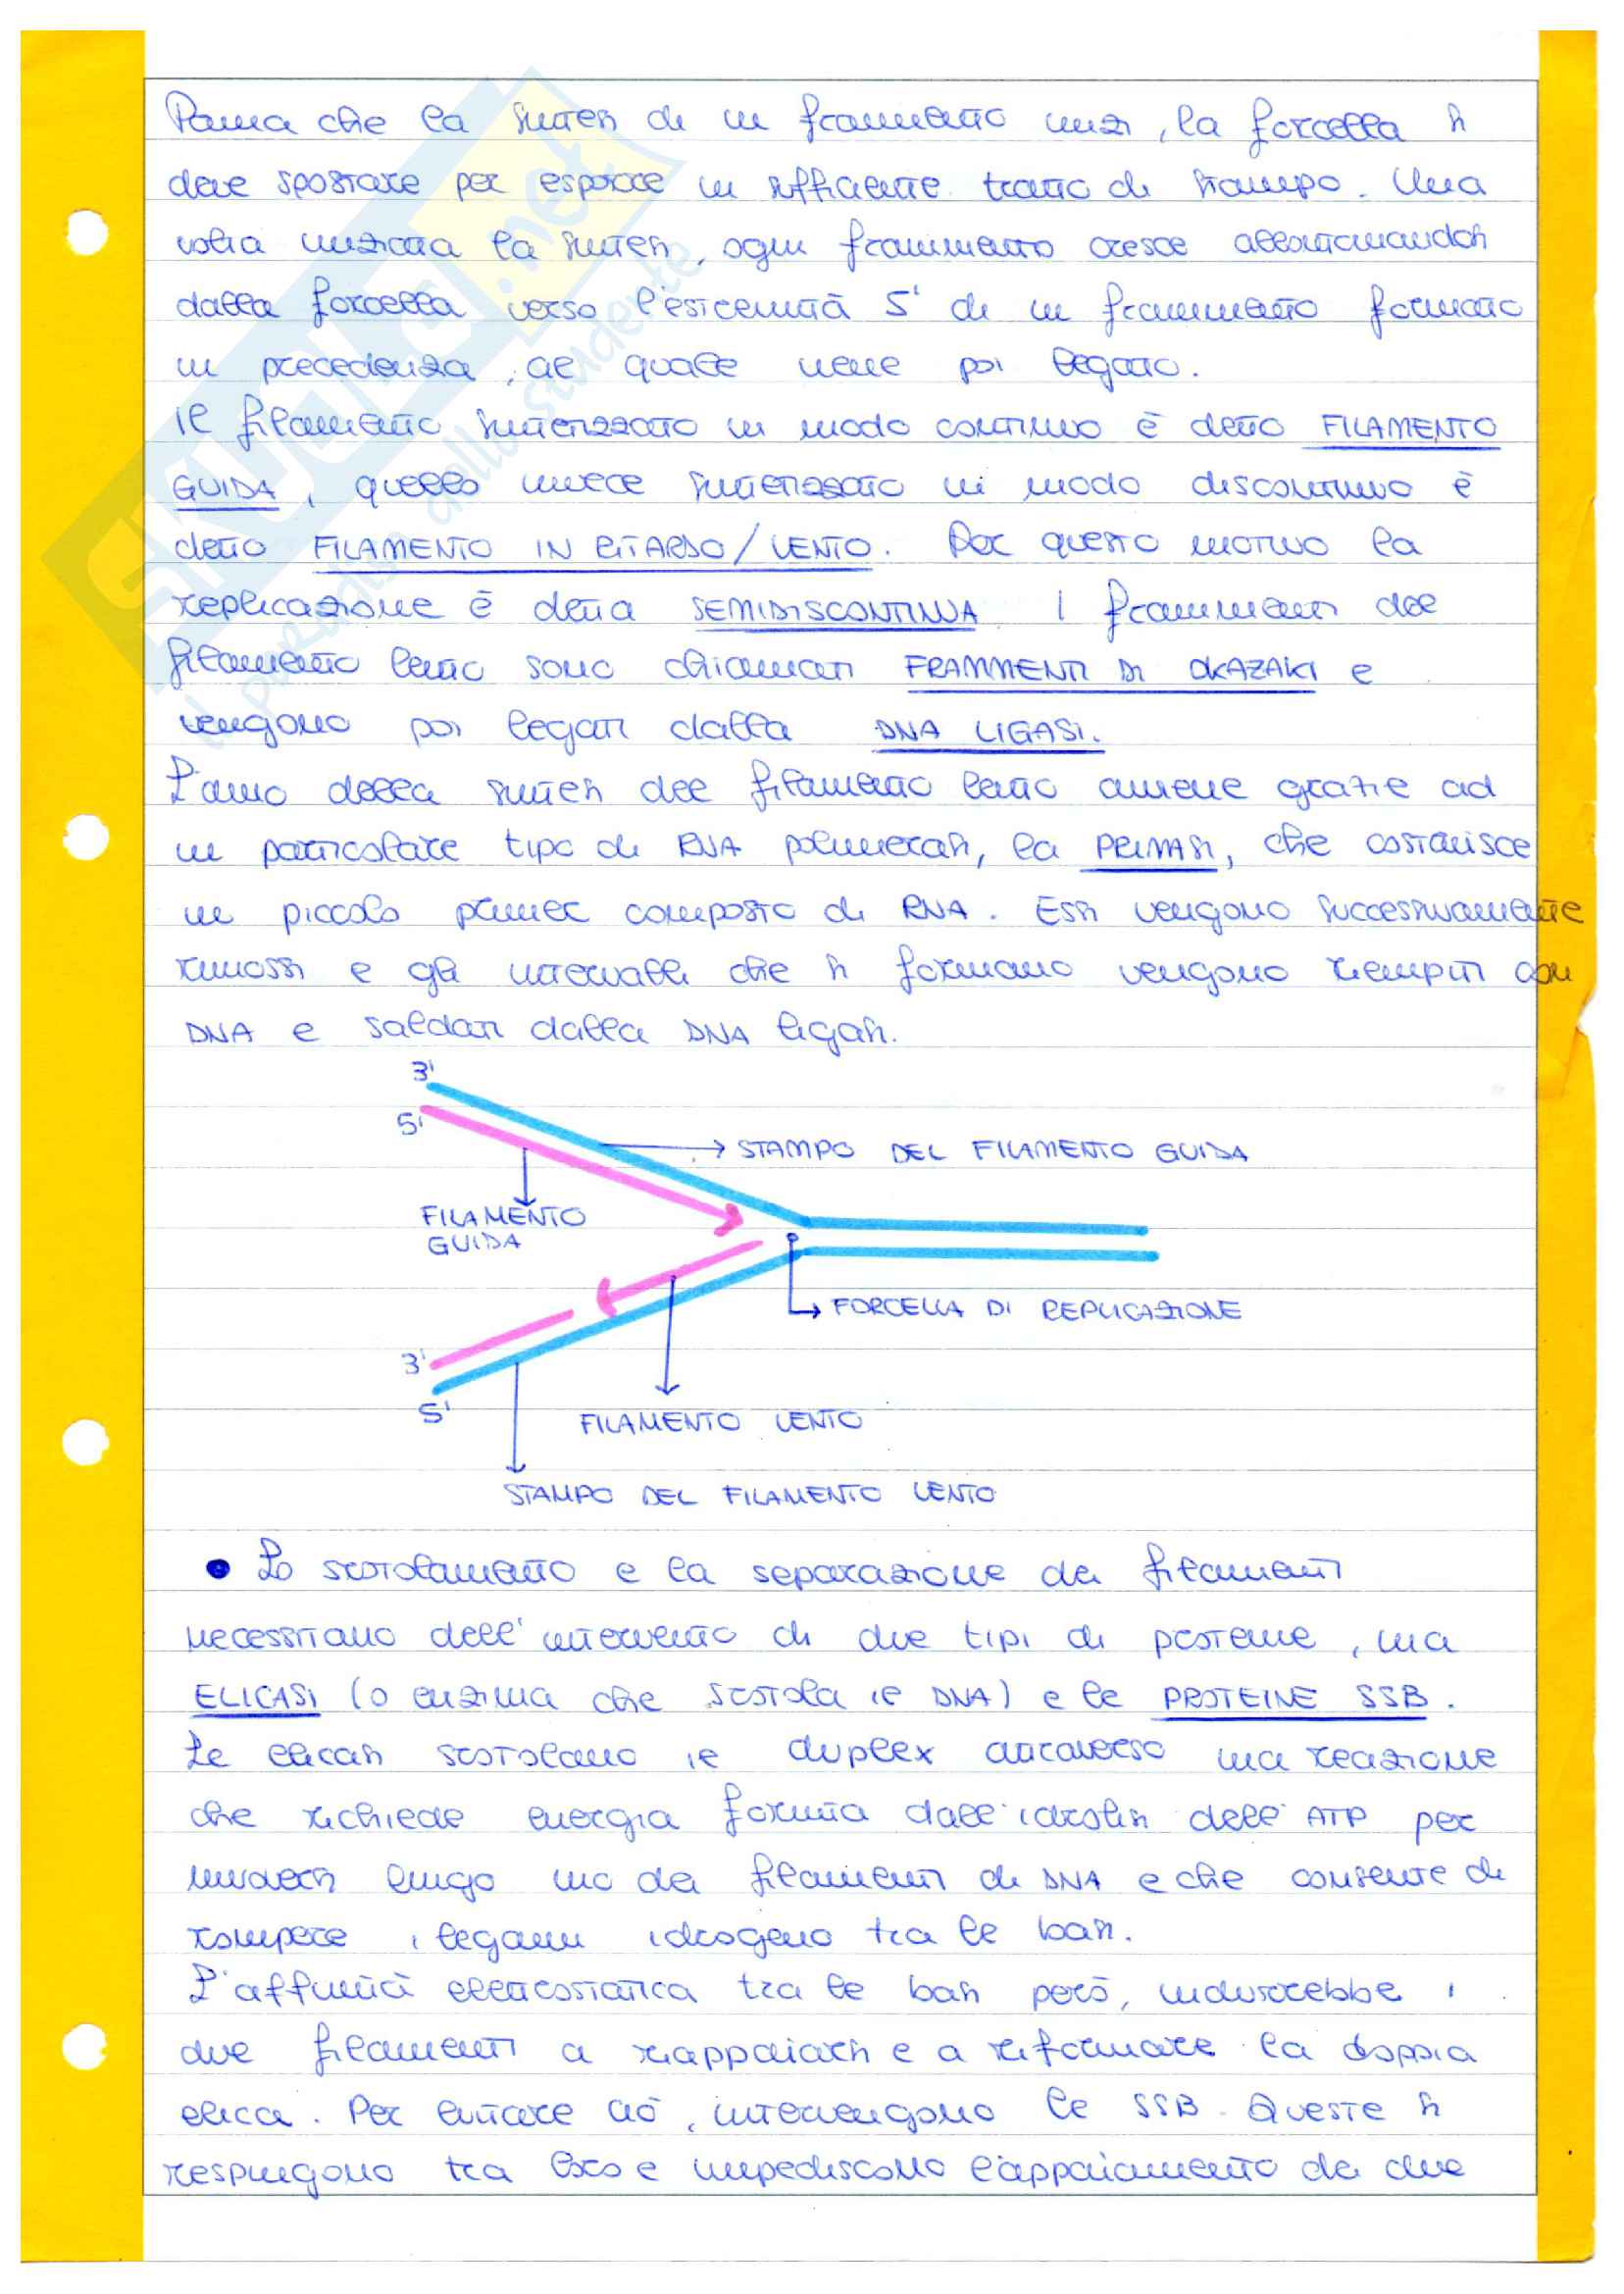 Prima che la sintesi di un frammento inizi, la forcella si
deve spostare per esporre un sufficiente tratto di stampo. Una
volta iniziata la sintesi, ogni frammento cresce allontanandosi
dalla forcella verso l'estremità 5' di un frammento formato
in precedenza, al quale viene poi legato.
Il filamento sintetizzato in modo continuo è detto FILAMENTO
GUIDA, quello invece sintetizzato in modo discontinuo è
detto FILAMENTO IN RITARDO/LENTO. Per questo motivo la
replicazione è detta SEMIDISCONTINUA I frammenti del
filamento lento sono chiamati FRAMMENTI DI OKAZAKI e
vengono poi legati dalla DNA LIGASI.
L'avvio della sintesi del filamento lento avviene grazie ad
un particolare tipo di RNA polimerasi, la PRIMASI, che costruisce
un piccolo primer composto di RNA. Essi vengono successivamente
rimossi e gli intervalli che si formano vengono riempiti con
DNA e saldati dalla DNA ligasi.
3'
5'
STAMPO DEL FILAMENTO GUIDA
FILAMENTO
GUIDA
FORCELLA DI REPLICAZIONE
3'
5'
FILAMENTO LENTO
STAMPO DEL FILAMENTO LENTO
• Lo srotolamento e la separazione dei filamenti
necessitano dell'intervento di due tipi di proteine, una
ELICASI (o enzima che srotola il DNA) e le PROTEINE SSB.
Le elicasi srotolano il duplex attraverso una reazione
che richiede energia fornita dall'idrolisi dell'ATP per
muoversi lungo uno dei filamenti di DNA e che consente di
rompere i legami idrogeno tra le basi.
L'affinità elettrostatica tra le basi però, indurrebbe i
due filamenti a riappaiarsi e a riformare la doppia
elica. Per evitare ciò, intervengono le SSB. Queste si
respingono tra loro e impediscono l'appaiamento dei due
SKUOLA.net
il paradiso dello studente